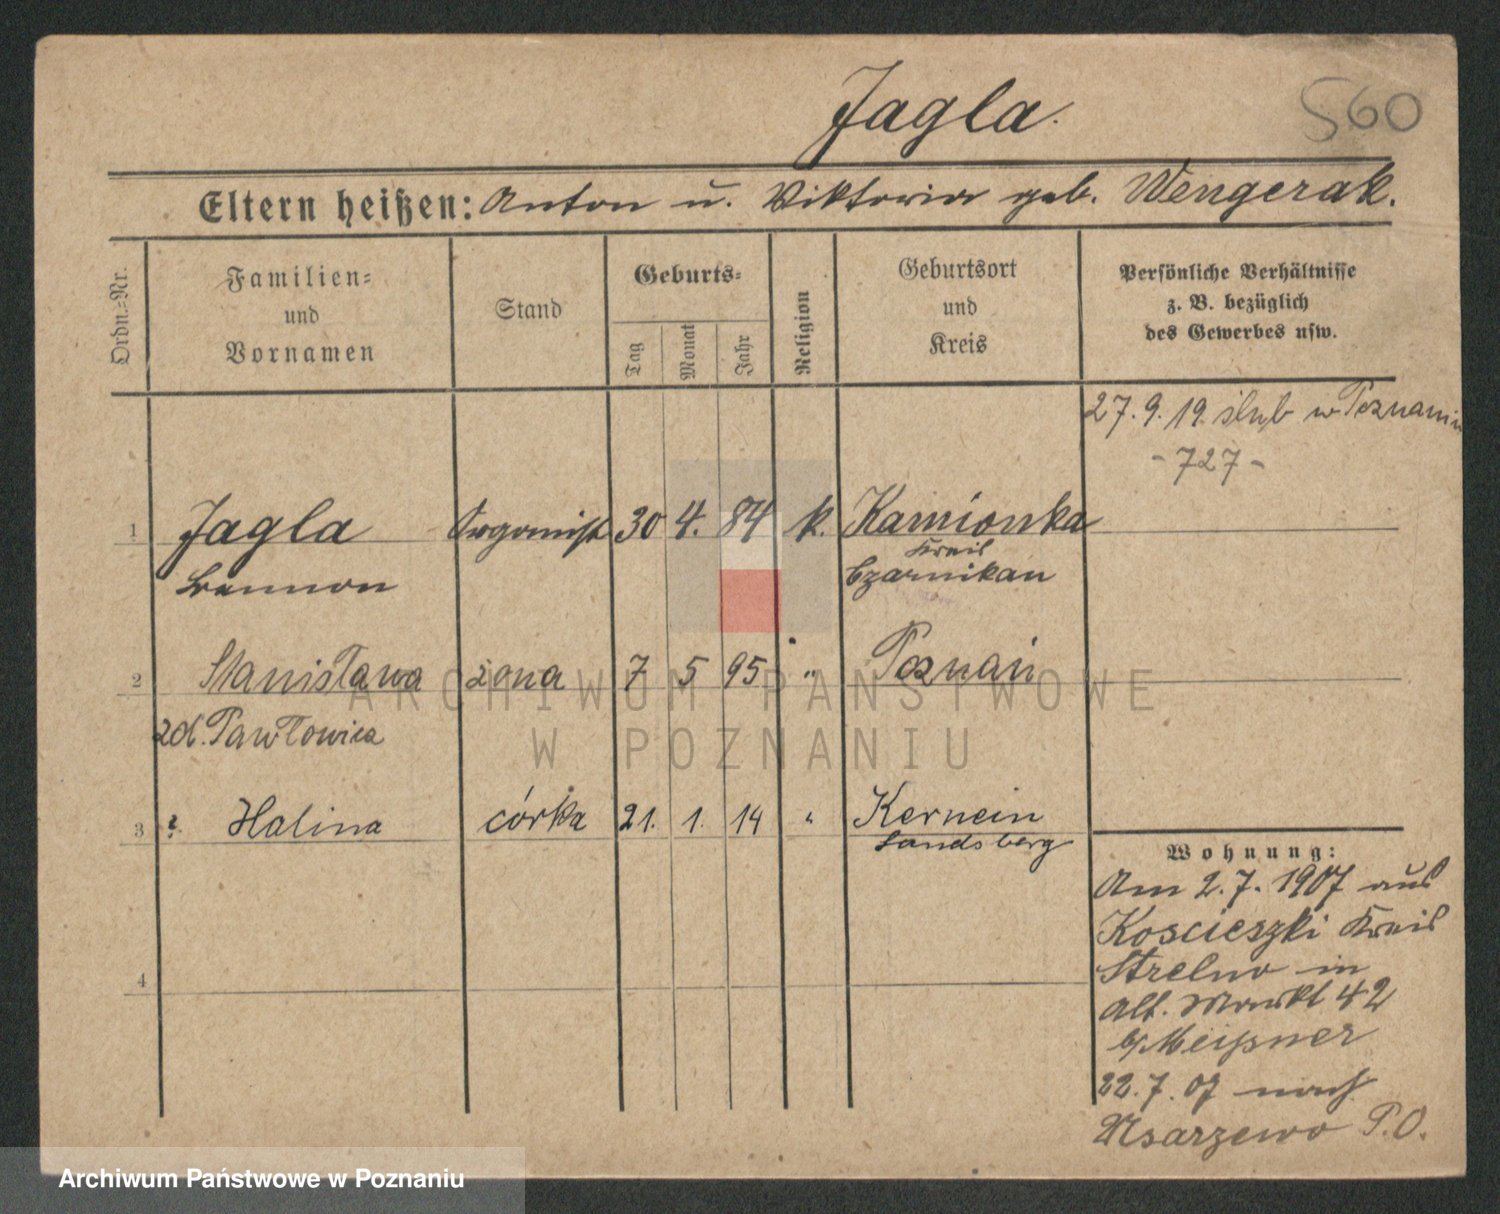 Jagla.
560
Eltern heißen: Anton u. Viktoria geb. Wengerak.
Ordn.=Nr.
Familien=
und
Vornamen
Stand
Geburts=
Tag
Monat
Jahr
Religion
Geburtsort
und
Kreis
Persönliche Verhältnisse
z. B. bezüglich
des Gewerbes usw.
27.9.19. ślub w Poznaniu
- 727 -
1 Jagla Organist 30 4. 84 k. Kamionka
Kreis
Czarnikau
2 Stanisława żona 7 5 95 " Poznań
zd. Pawłowicz
3 ?. Halina córka 21. 1. 14 " Kernein
Landsberg
4
Wohnung:
Am 2.7.1907 aus
Koscieszki Kreis
Strelno in
Alt. Markt 42
b/Meißner
22.7.07 nach
P.O.
ARCHIWUM PAŃSTWOWE
W POZNANIU
Archiwum Państwowe w Poznaniu